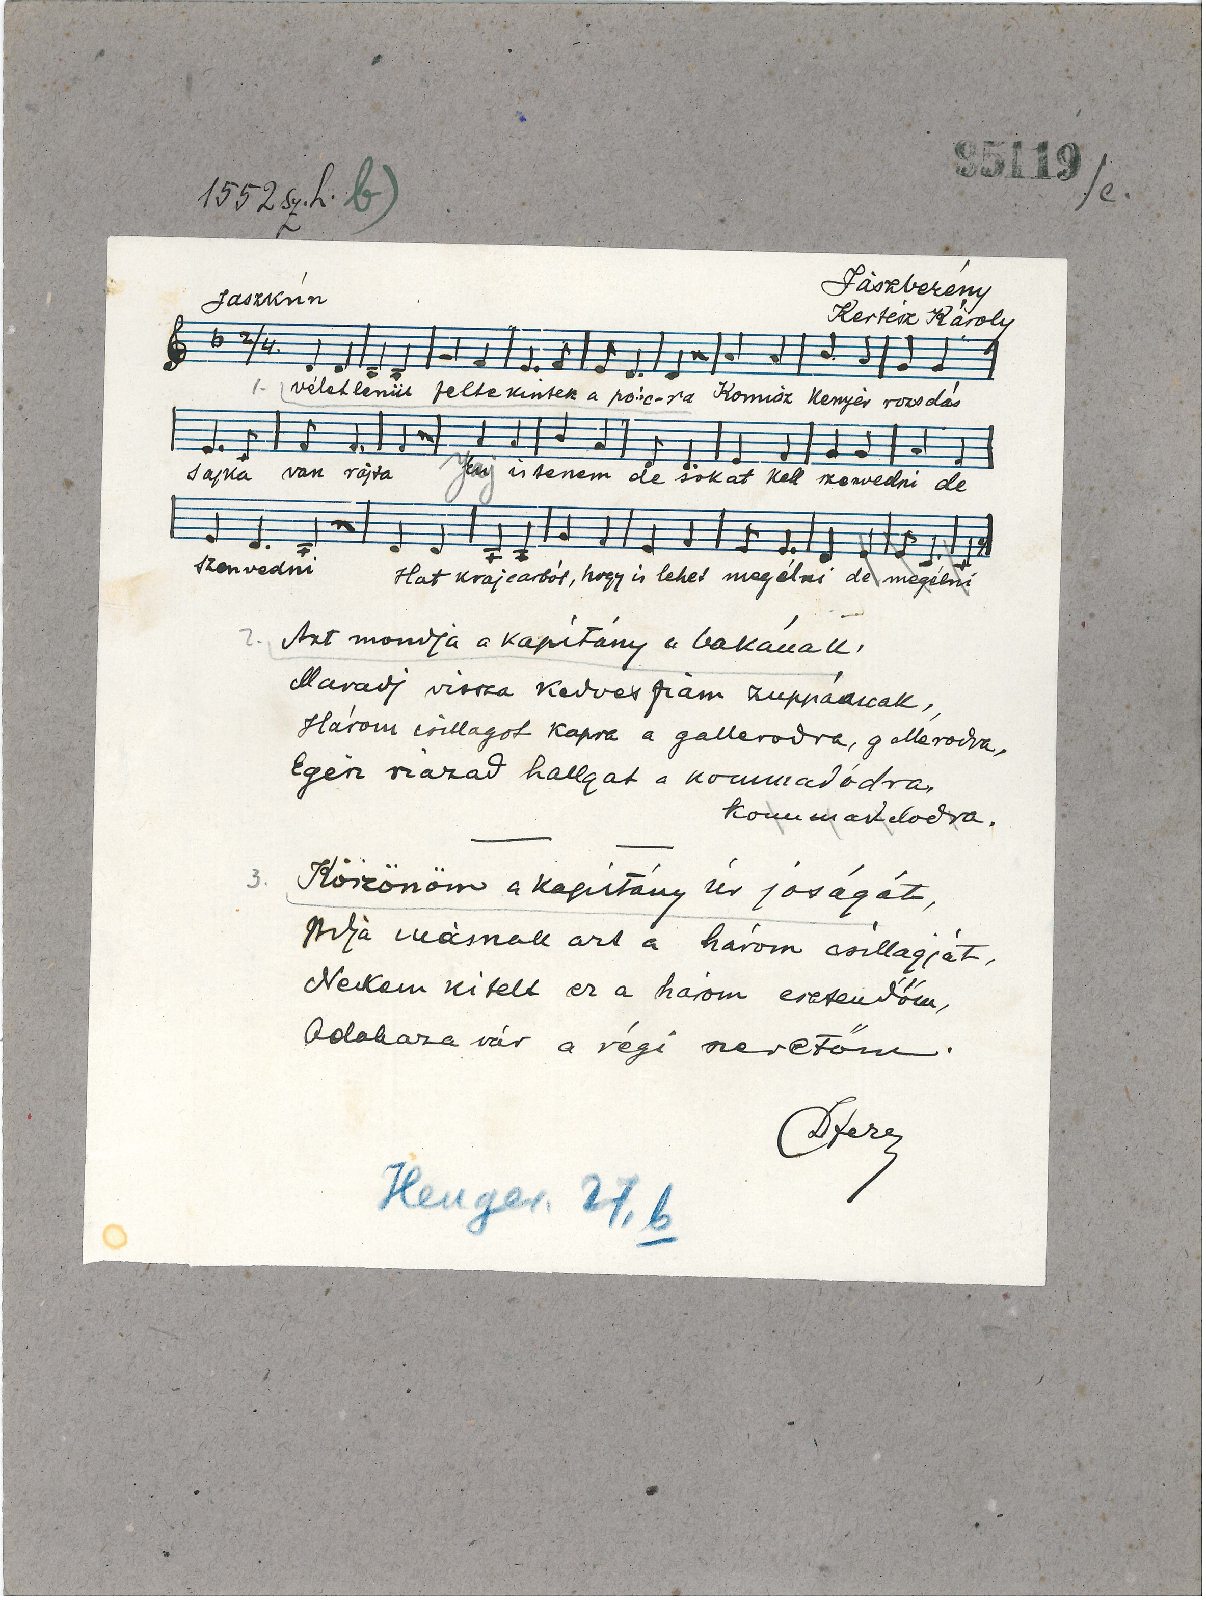 35119/c.
1552 sz. h. b)
Jászkún
Jászberény
Kertész Károly
2/4.
1. véletlenül feltekintek a pó:c-ra Komisz kenyér rozsdás
sajka van rajta Jaj istenem de sokat kell szenvedni de
szenvedni Hat krajcárból, hogy is lehet megélni de megélni
2. Azt mondja a kapitány a bakának,
Maradj vissza kedves fiam zuppának,
Három csillagot kapsz a gallerodra, gallérodra,
Egész század hallgat a kommadódra,
kommandodra.
3. Köszönöm a kapitány úr jóságát,
Adja másnak azt a három csillagját,
Nekem kitelt ez a három esztendőm,
Odahaza vár a régi szeretőm.
Henger. 27, b